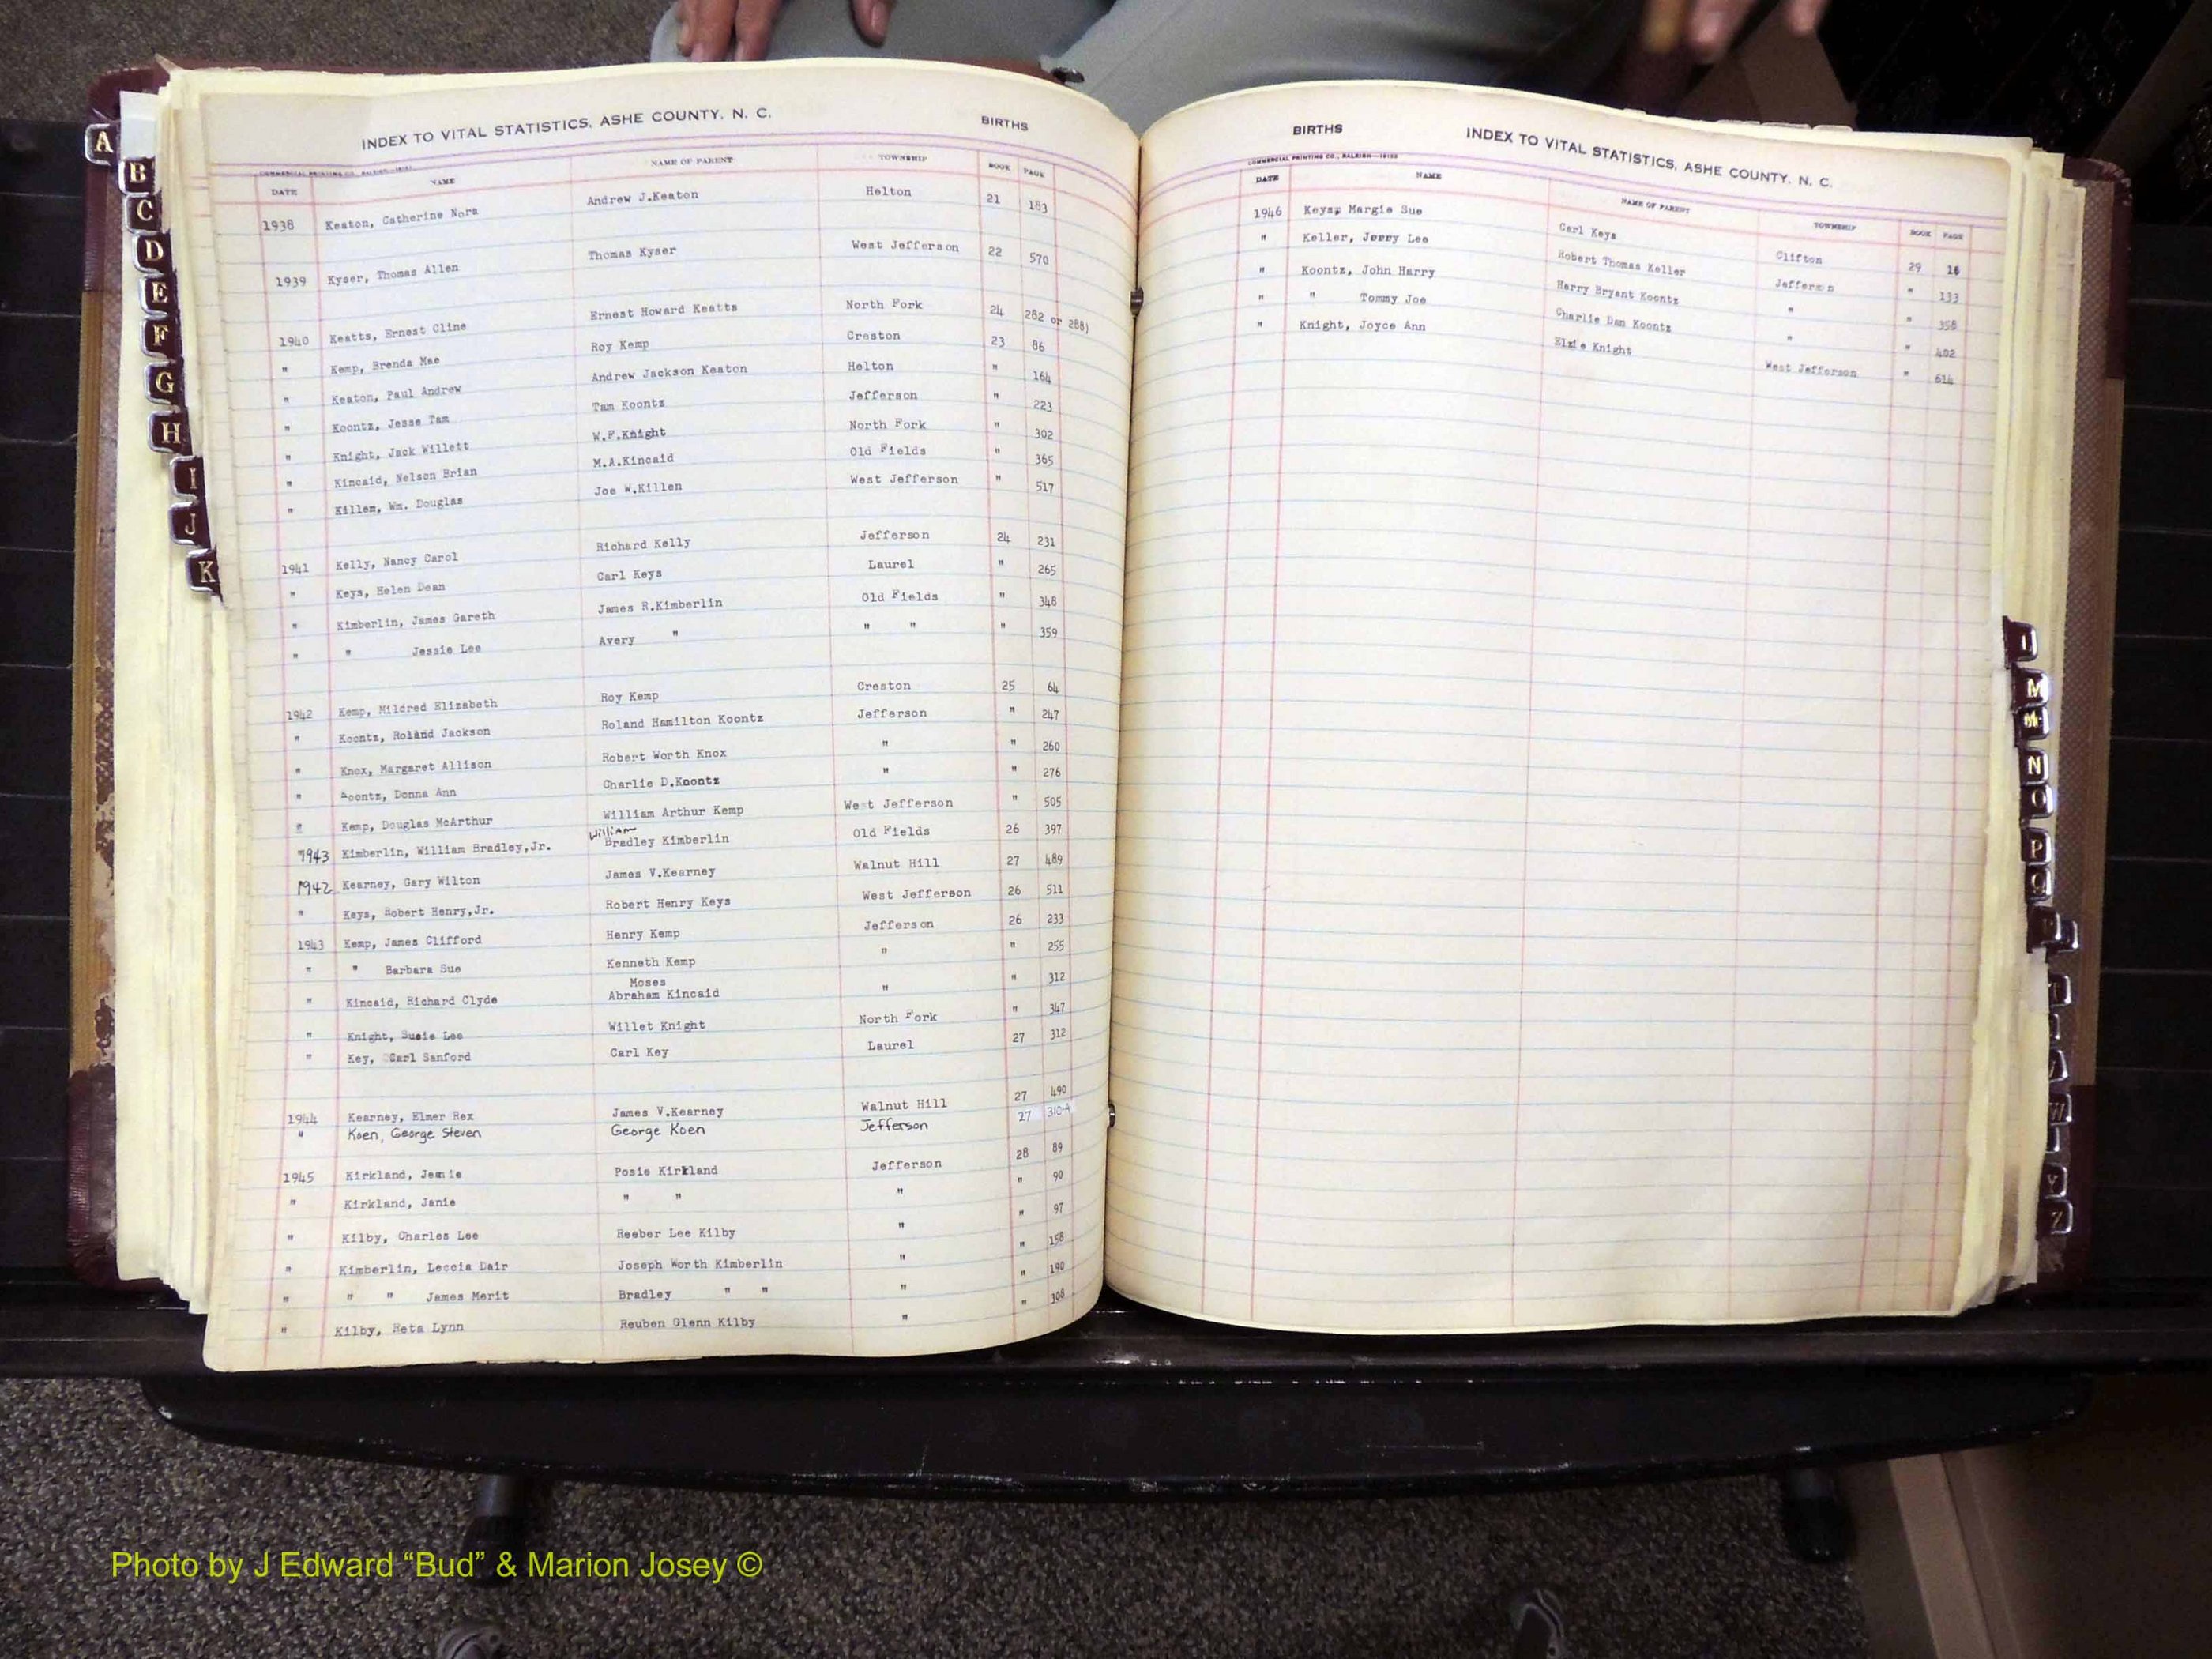 INDEX TO VITAL STATISTICS, ASHE COUNTY, N. C. BIRTHS
COMMERCIAL PRINTING CO., RALEIGH
DATE NAME NAME OF PARENT TOWNSHIP BOOK PAGE
1938 Keaton, Catherine Nora Andrew J.Keaton Helton 21 183
1939 Kyser, Thomas Allen Thomas Kyser West Jefferson 22 570
1940 Keatts, Ernest Cline Ernest Howard Keatts North Fork 24 282 or 288)
" Kemp, Brenda Mae Roy Kemp Creston 23 86
" Keaton, Paul Andrew Andrew Jackson Keaton Helton " 164
" Koontz, Jesse Tam Tam Koontz Jefferson " 223
" Knight, Jack Willett W.F.Knight North Fork " 302
" Kincaid, Nelson Brian M.A.Kincaid Old Fields " 365
" Killen, Wm. Douglas Joe W.Killen West Jefferson " 517
1941 Kelly, Nancy Carol Richard Kelly Jefferson 24 231
" Keys, Helen Dean Carl Keys Laurel " 265
" Kimberlin, James Gareth James R.Kimberlin Old Fields " 348
" " Jessie Lee Avery " " " " 359
1942 Kemp, Mildred Elizabeth Roy Kemp Creston 25 64
" Koontz, Roland Jackson Roland Hamilton Koontz Jefferson " 247
" Knox, Margaret Allison Robert Worth Knox " " 260
" Koontz, Donna Ann Charlie D.Koontz " " 276
" Kemp, Douglas McArthur William Arthur Kemp West Jefferson " 505
1943 Kimberlin, William Bradley,Jr. William Bradley Kimberlin Old Fields 26 397
1942 Kearney, Gary Wilton James V.Kearney Walnut Hill 27 489
" Keys, Robert Henry,Jr. Robert Henry Keys West Jefferson 26 511
1943 Kemp, James Clifford Henry Kemp Jefferson 26 233
" " Barbara Sue Kenneth Kemp " " 255
" Kincaid, Richard Clyde Moses Abraham Kincaid " " 312
" Knight, Susie Lee Willet Knight North Fork " 347
" Key, Carl Sanford Carl Key Laurel 27 312
1944 Kearney, Elmer Rex James V.Kearney Walnut Hill 27 490
" Koen, George Steven George Koen Jefferson 27 310-A
1945 Kirkland, Jemie Posie Kirkland Jefferson 28 89
" Kirkland, Janie " " " " 90
" Kilby, Charles Lee Reeber Lee Kilby " " 97
" Kimberlin, Leccia Dair Joseph Worth Kimberlin " " 158
" " " James Merit Bradley " " " " 190
" Kilby, Reta Lynn Reuben Glenn Kilby " " 308
BIRTHS INDEX TO VITAL STATISTICS, ASHE COUNTY, N. C.
COMMERCIAL PRINTING CO., RALEIGH
DATE NAME NAME OF PARENT TOWNSHIP BOOK PAGE
1946 Keys, Margie Sue Carl Keys Clifton 29 16
" Keller, Jerry Lee Robert Thomas Keller Jefferson " 133
" Koontz, John Harry Harry Bryant Koontz " " 358
" " Tommy Joe Charlie Dan Koontz " " 402
" Knight, Joyce Ann Elzie Knight West Jefferson " 614
A
B
C
D
E
F
G
H
I
J
K
M
N
O
P
Q
W
Y
Z
Photo by J Edward “Bud” & Marion Josey ©